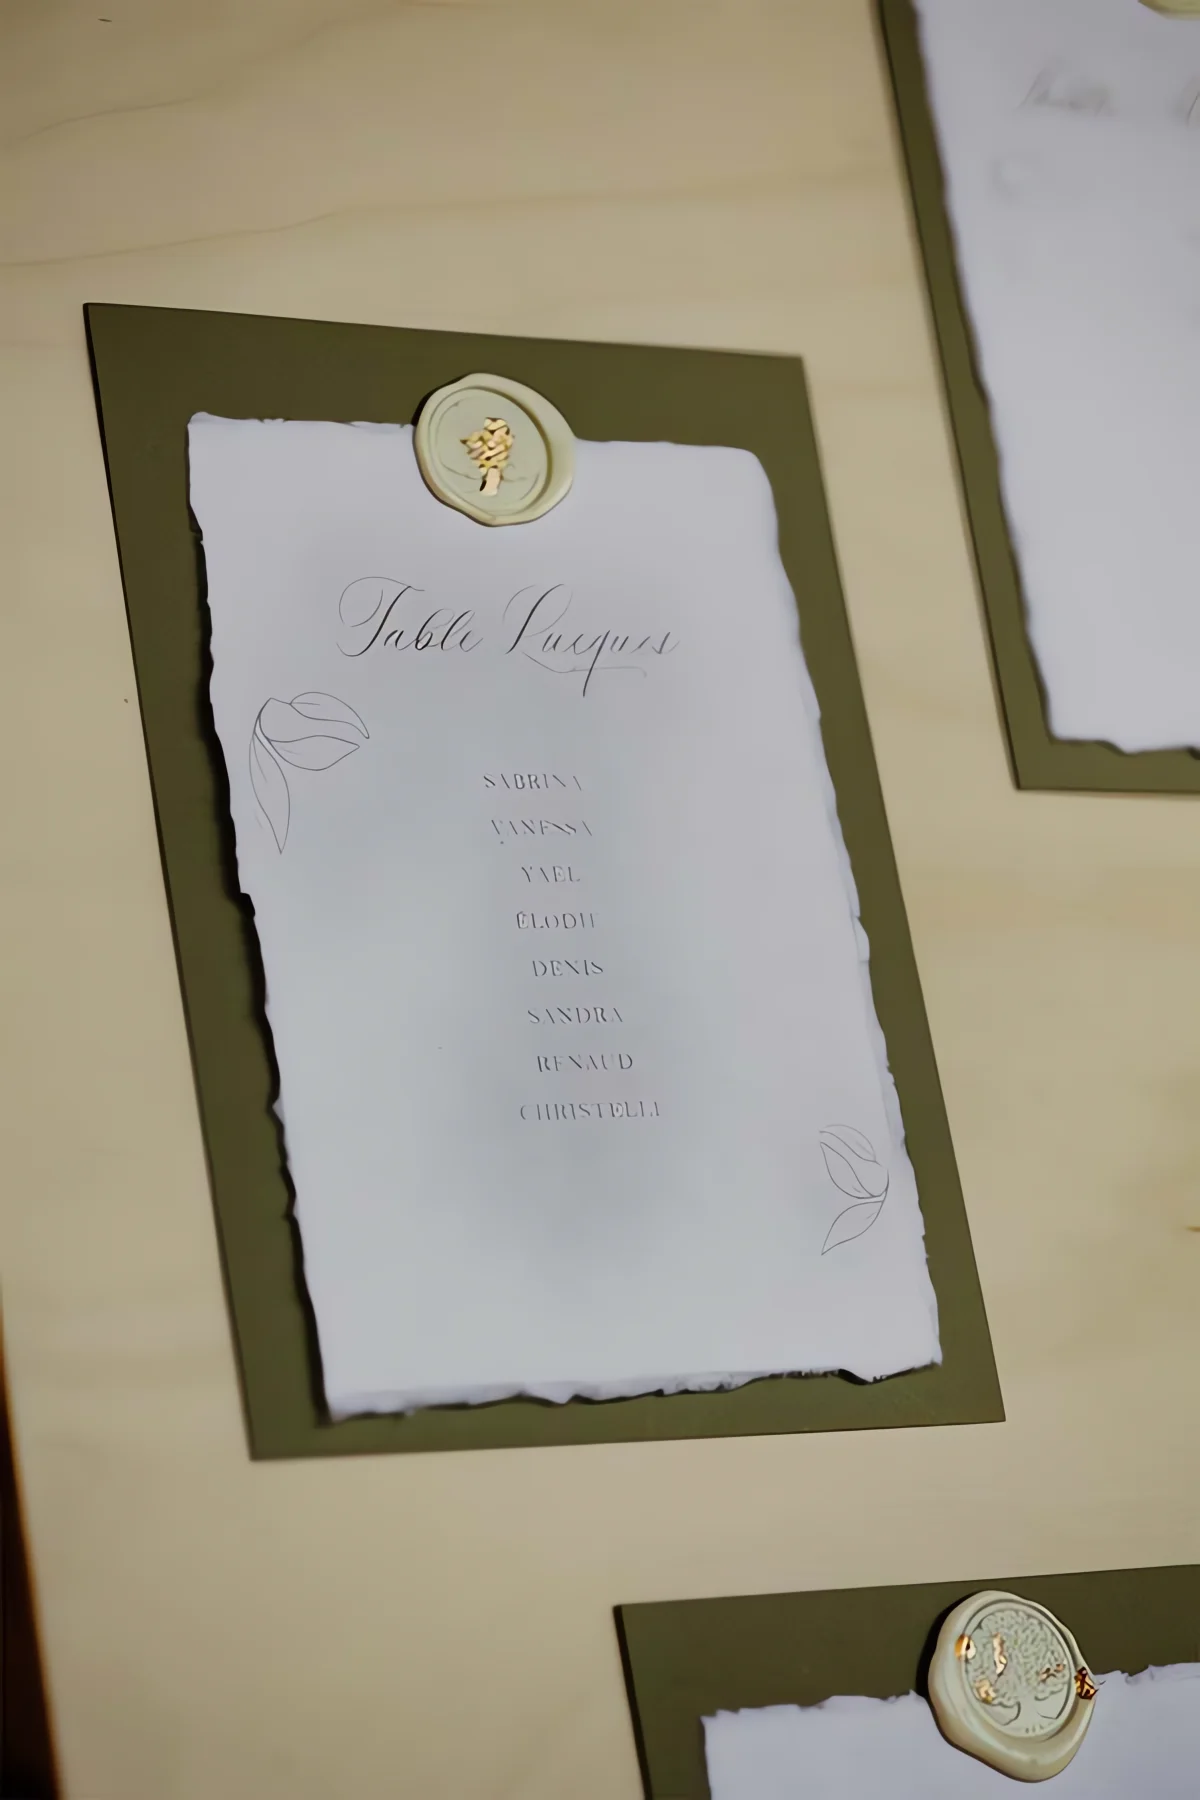 Table Lucques
SABRINA
VANESSA
YAEL
ÉLODIE
DENIS
SANDRA
RENAUD
CHRISTELLE